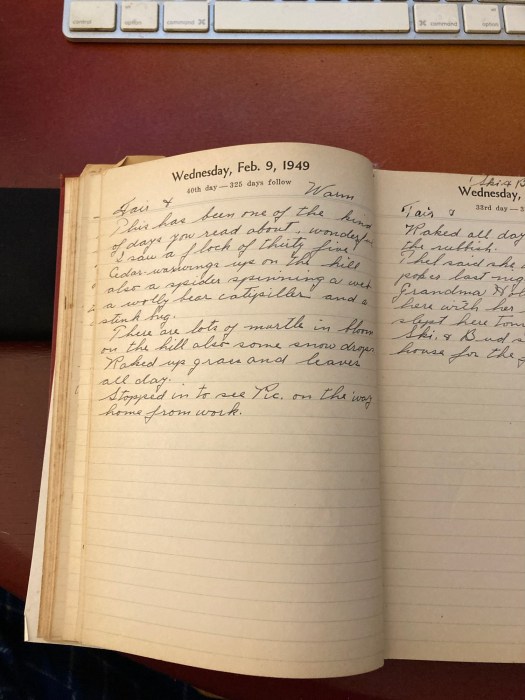 control
option
command ⌘
⌘ command
option
Wednesday, Feb. 9, 1949
40th day — 325 days follow
Fair & Warm
This has been one of the kind
of days you read about, wonderful
I saw a flock of thirty five
Cedar waxwings up on the hill
also a spider spinning a web
a wolly bear catipiller and a
stink bug.
There are lots of mirtle in bloom
on the hill also some snow drops
Raked up grass and leaves
all day.
Stopped in to see Ric. on the way
home from work.
Ski & B
Wednesday,
33rd day — 3
Fair &
Raked all day
the rubbish.
said she
pokes last nig
Grandma
here with her
slept here ton
Ski. & Bud s
house for the